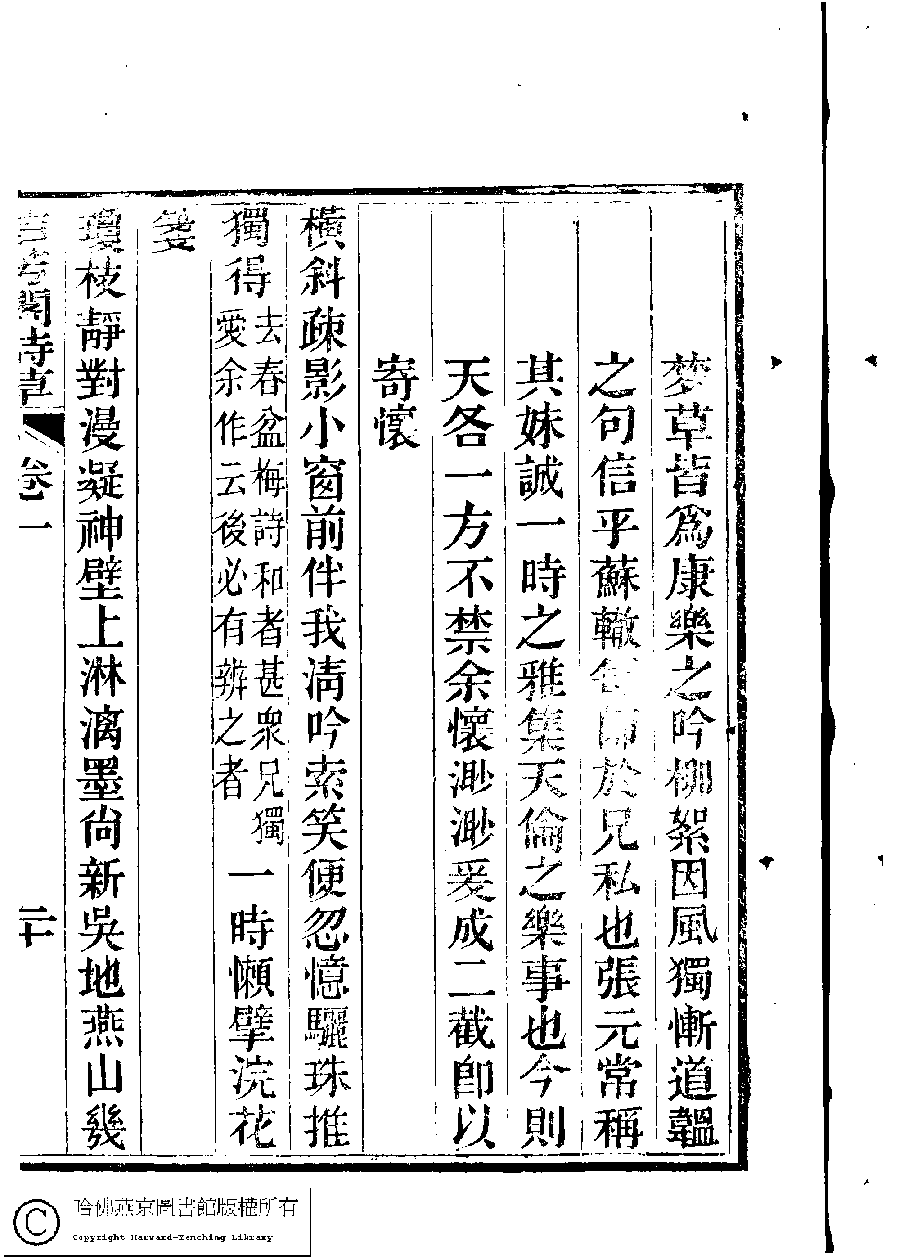 夢草皆爲康樂之吟柳絮因風獨慚道韞
之句信乎蘇轍師於兄私也張元常稱
其妹誠一時之雅集天倫之樂事也今則
天各一方不禁余懷渺渺爰成二截卽以
寄懷
橫斜疎影小窗前伴我淸吟索笑便忽憶驪珠推
獨得去春盆梅詩和者甚衆兄獨愛余作云後必有辨之者一時懶擘浣花
箋
瓊枝靜對漫凝神壁上淋漓墨尙新吳地燕山幾
閣詩草 卷一 二十
哈佛燕京圖書館版權所有
Copyright Harvard-Yenching Library